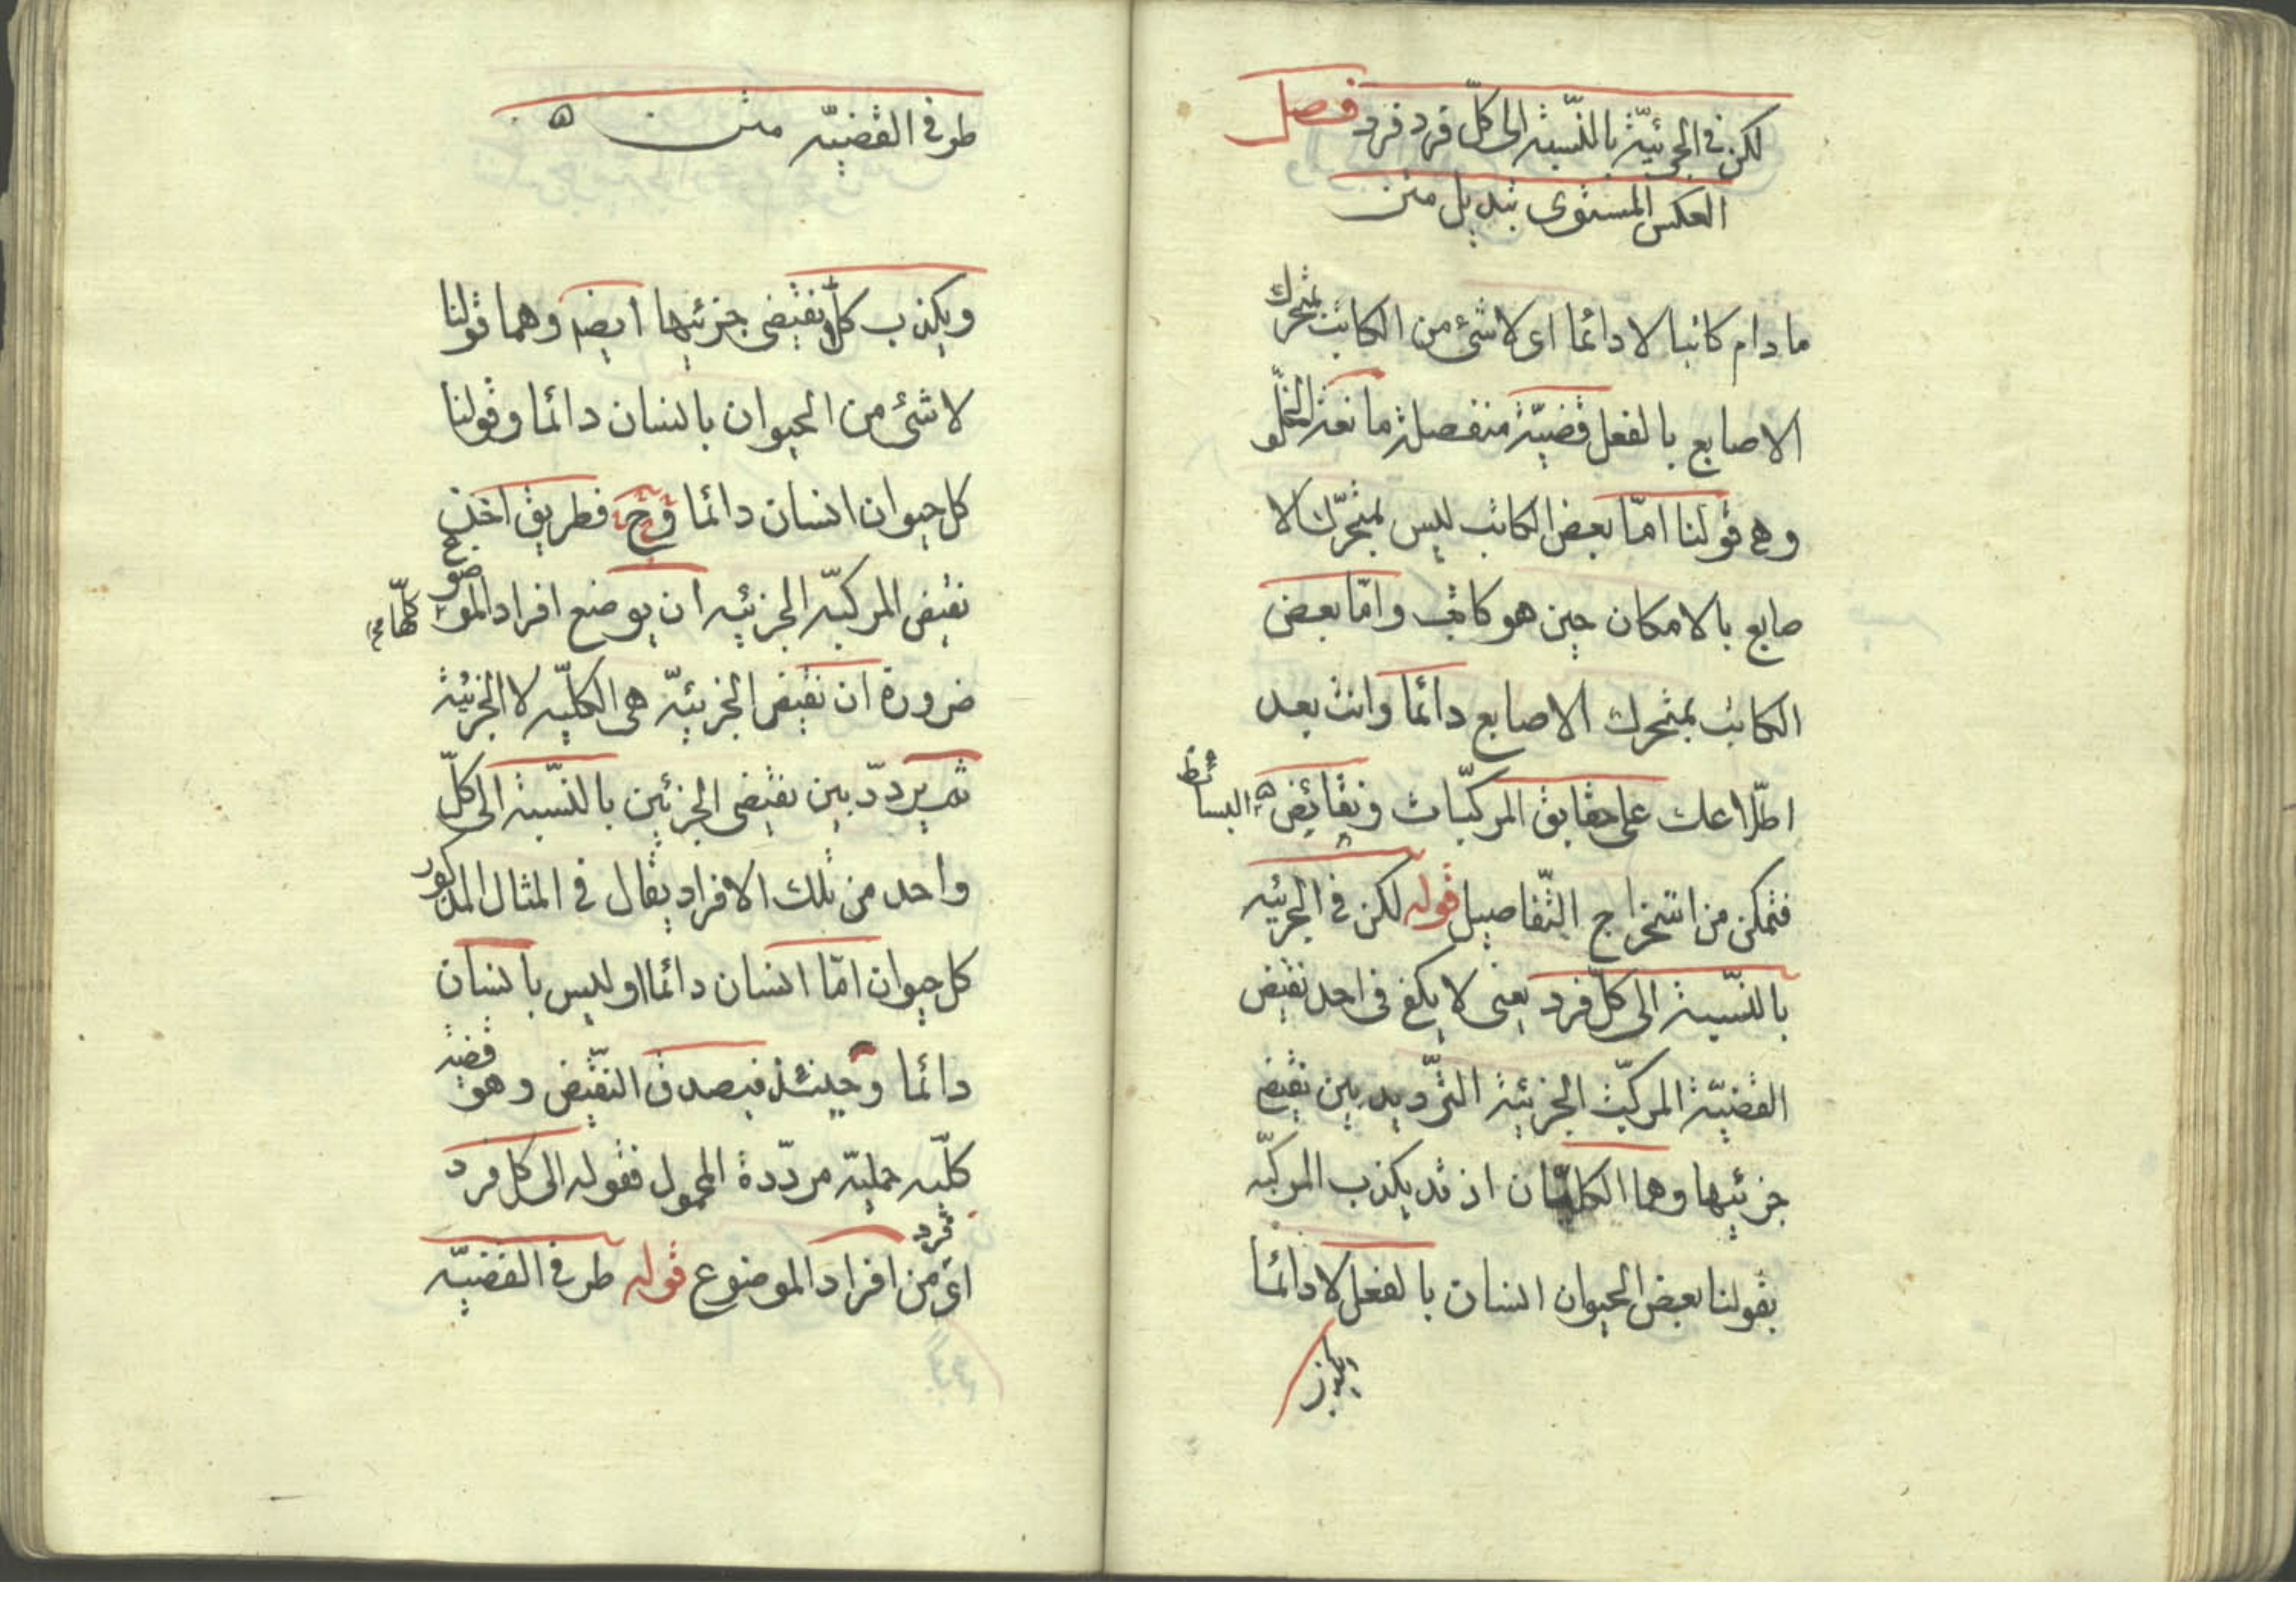 لكن في الجزئيّة بالنّسبة الى كلّ فرد فرد فصل
العكس المستوى تبديل متن
ما دام كاتبا لا دائما اى لا شئ من الكاتب بمتحرك
الاصابع بالفعل قضيّة منفصلة مانعة الخلّو
وهى قولنا امّا بعض الكاتب ليس بمتحرّك الا
صابع بالامكان حين هو كاتب وامّا بعض
الكاتب بمتحرك الاصابع دائما وانت بعد
اطّلاعك على حقايق المركبّات ونقائض البسائط
فتمكن من استخراج التّفاصيل قوله لكن في الجزئيه
بالنّسبة الى كلّ فرد يعنى لا يكفى فى احد نقيض
القضيّة المركبّة الجزئية التّرديد بين نقيضى
جزئيها وهما الكليّتان اذ قد يكذب المركبّه
بقولنا بعض الحيوان انسان بالفعل لا دائما
ويكذب
طرفى القضيّه متن ه
ويكذب كلا نقيضى جزئيها ايضه وهما قولنا
لا شئ من الحيوان بانسان دائما وقولنا
كل حيوان انسان دائما وح فطريق اخذ
نقيض المركبّه الجزئيه ان يوضع افراد الموضوع كلّها صح
ضرورة ان نقيض الجزئيّه هى الكليّه لا الجزئية
ثم يردّد بين نقيضى الجزئين بالنّسبة الى كلّ
واحد من تلك الافراد يقال فى المثال المذكور
كل حيوان امّا انسان دائما او ليس بانسان
دائما وحينئذ فيصدق النقّيض وهو قضية
كلّيه حمليّه مردّدة المحمول فقوله الى كل فرد
اى من افراد الموضوع قوله طرفى القضيّه